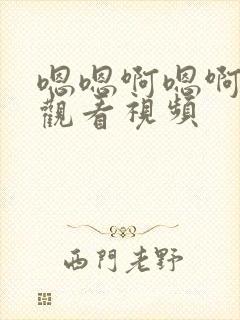 嗯嗯啊嗯啊
觀看視頻
西門老野